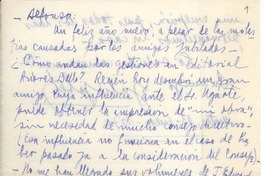 1
- Alfonso:
Un feliz año nuevo, a pesar de las moles
tias causadas por los amigos jubilados -
¿Cómo andan las gestiones en Editorial
Andrés Bello? Recién hoy descubrí un gran
amigo cuya influencia ante el Sr. Ugarte
puede obtener la impresión de "mis obras",
sin necesidad de mucho consejo directivo -
(con influencia no funciona en el caso de
ber pasado ya a la consideración del Consejo) -
- No me han llegado sus volúmenes de